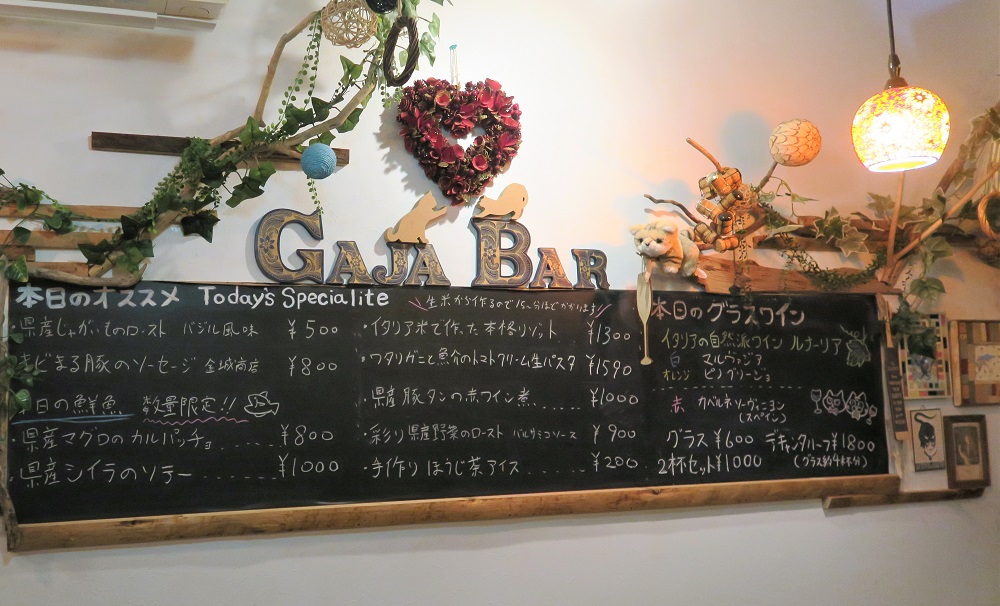 GAJA BAR
本日のオススメ Today's Specialite
・県産じゃがいものロースト バジル風味 ¥500
きどまる豚のソーセージ 金城商店 ¥800
本日の鮮魚 数量限定!!
・県産マグロのカルパッチョ ..... ¥800
・県産シイラのソテー ....... ¥1000
\生米から作るので15〜分ほどかかります/
・イタリア米で作った本格リゾット ¥1300
・ワタリガニと魚介のトマトクリーム生パスタ ¥1590
・県産豚タンの赤ワイン煮 ..... ¥1000
・彩り県産野菜のロースト バルサミコソース ¥900
・手作りほうじ茶アイス ...... ¥200
本日のグラスワイン
イタリアの自然派ワイン ルナーリア
白 マルヴァジア
オレンジ ピノグリージョ
赤 カベルネソーヴィニヨン
(スペイン)
グラス¥600 デキャンタハーフ¥1800
2杯セット¥1000 (グラス約4杯分)